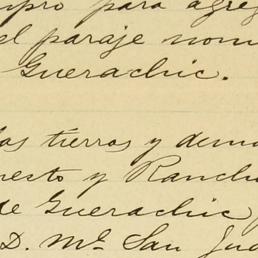 mpro para agreg
el paraje nom
Guerachic.
las tierras y dema
uesto y Rancho
de Guerachic
D. Mᵉ San Jua